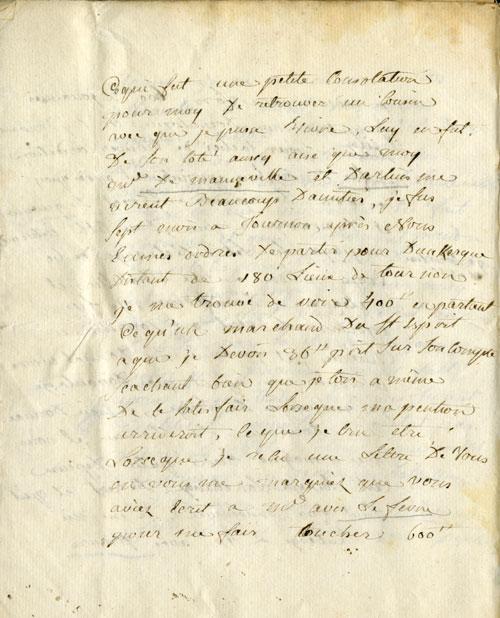 Cequi fut une petite Consolation
pour moy De retrouver un Cousin
avec qui je puse Ecrire, Luy en fut
De son coté aussy aise que moy
mr De manneville et Darlus me
firent Beaucoups Damities, je fus
sept mois a Tournon, après Nous
Eumes ordres De partir pour Dunkerque
Distant de 180 Lieue de tournon
je me trouvé de voir 400tt en partant
Ce qu'un marchand Du St Esprit
a que je Devois 86tt prit sur son compte
sachant bien que jetois a même
De le satisfair Lorseque ma pention
arriveroit, le que je Cru etre
Lorseque je recu une Letre De Vous
ou vous me marquiez que vous
aviez Ecrit a mr avec Le fevre
pour me fair toucher 600tt